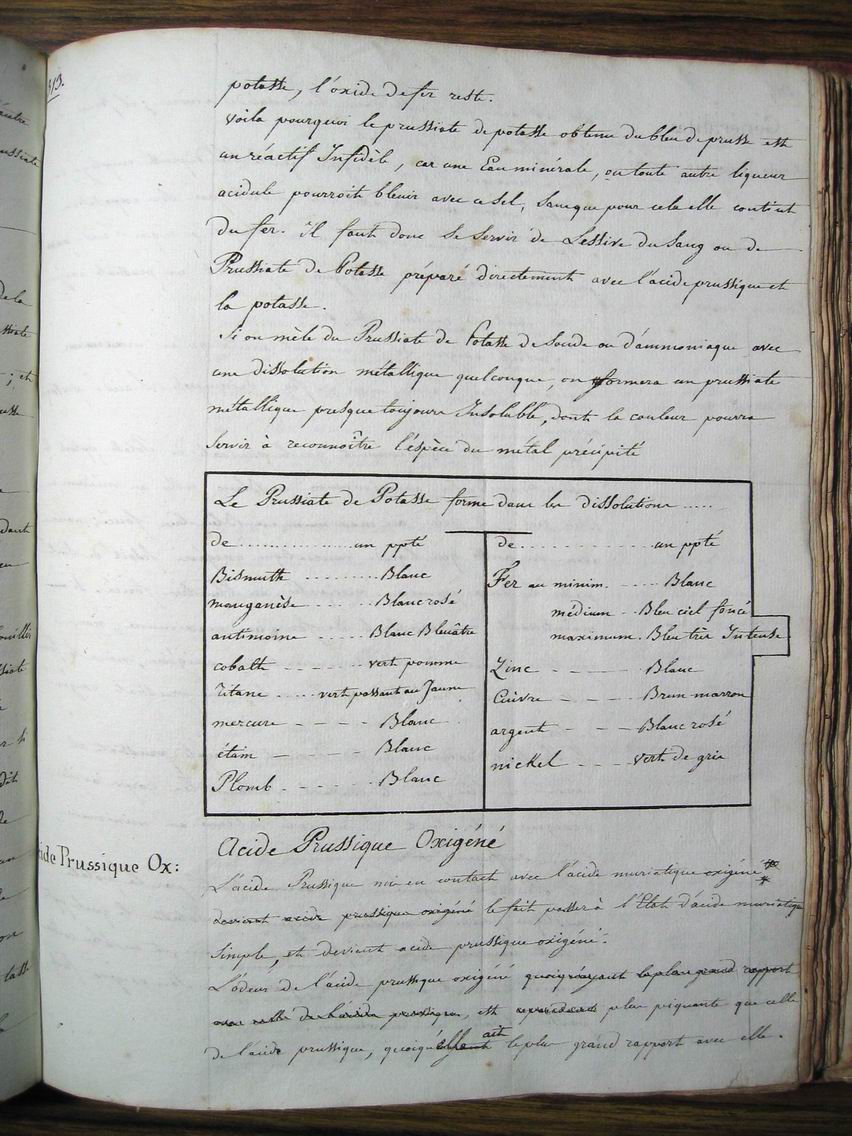 313.
potasse, l'oxide de fer reste.
Voila pourquoi le prussiate de potasse obtenu du bleu de prusse est
un réactif Infidèle, car une Eau minérale, ou toute autre liqueur
acidule pourroit bleuir avec ce sel, sans que pour cela elle contint
du fer. Il faut donc se servir de Lessive du Sang ou de
Prussiate de Potasse préparé directement avec l'acide prussique et
la potasse.
Si on mêle du Prussiate de Potasse de Soude ou d'ammoniaque avec
une dissolution métallique quelconque, on formera un prussiate
métallique presque toujours Insoluble, dont la couleur pourra
servir à reconnoître l'éspèce du métal précipité
Le Prussiate de Potasse forme dans les dissolutions .....
de .............. un ppté
Bismuth ......... Blanc
manganèse ....... Blanc rosé
antimoine ....... Blanc Bleuâtre
cobalth ........ vert pomme
Titane ..... vert passant au Jaune
mercure - - - - Blanc
étain - - - - Blanc
Plomb - - - - Blanc
de .............. un ppté
Fer au minim. ..... Blanc
médium .. Bleu ciel foncé
maximum. Bleu très Intense
Zinc - - - - Blanc
Cuivre - - - - Brun marron
argent - - - - Blanc rosé
nickel - - - - vert de gris
Acide Prussique Oxigéné
ide Prussique Ox:
L'acide Prussique mis en contact avec l'acide muriatique oxigéné
devient acide prussique oxigéné le fait passer à l'Etat d'acide muriatique
simple, et devient acide prussique oxigéné.
L'odeur de l'acide prussique oxigéné quoiqu'ayant le plus grand rapport
avec celle de l'acide prussique, est cependant plus piquante que celle
de l'acide prussique, quoiqu'elle ait le plus grand rapport avec elle.